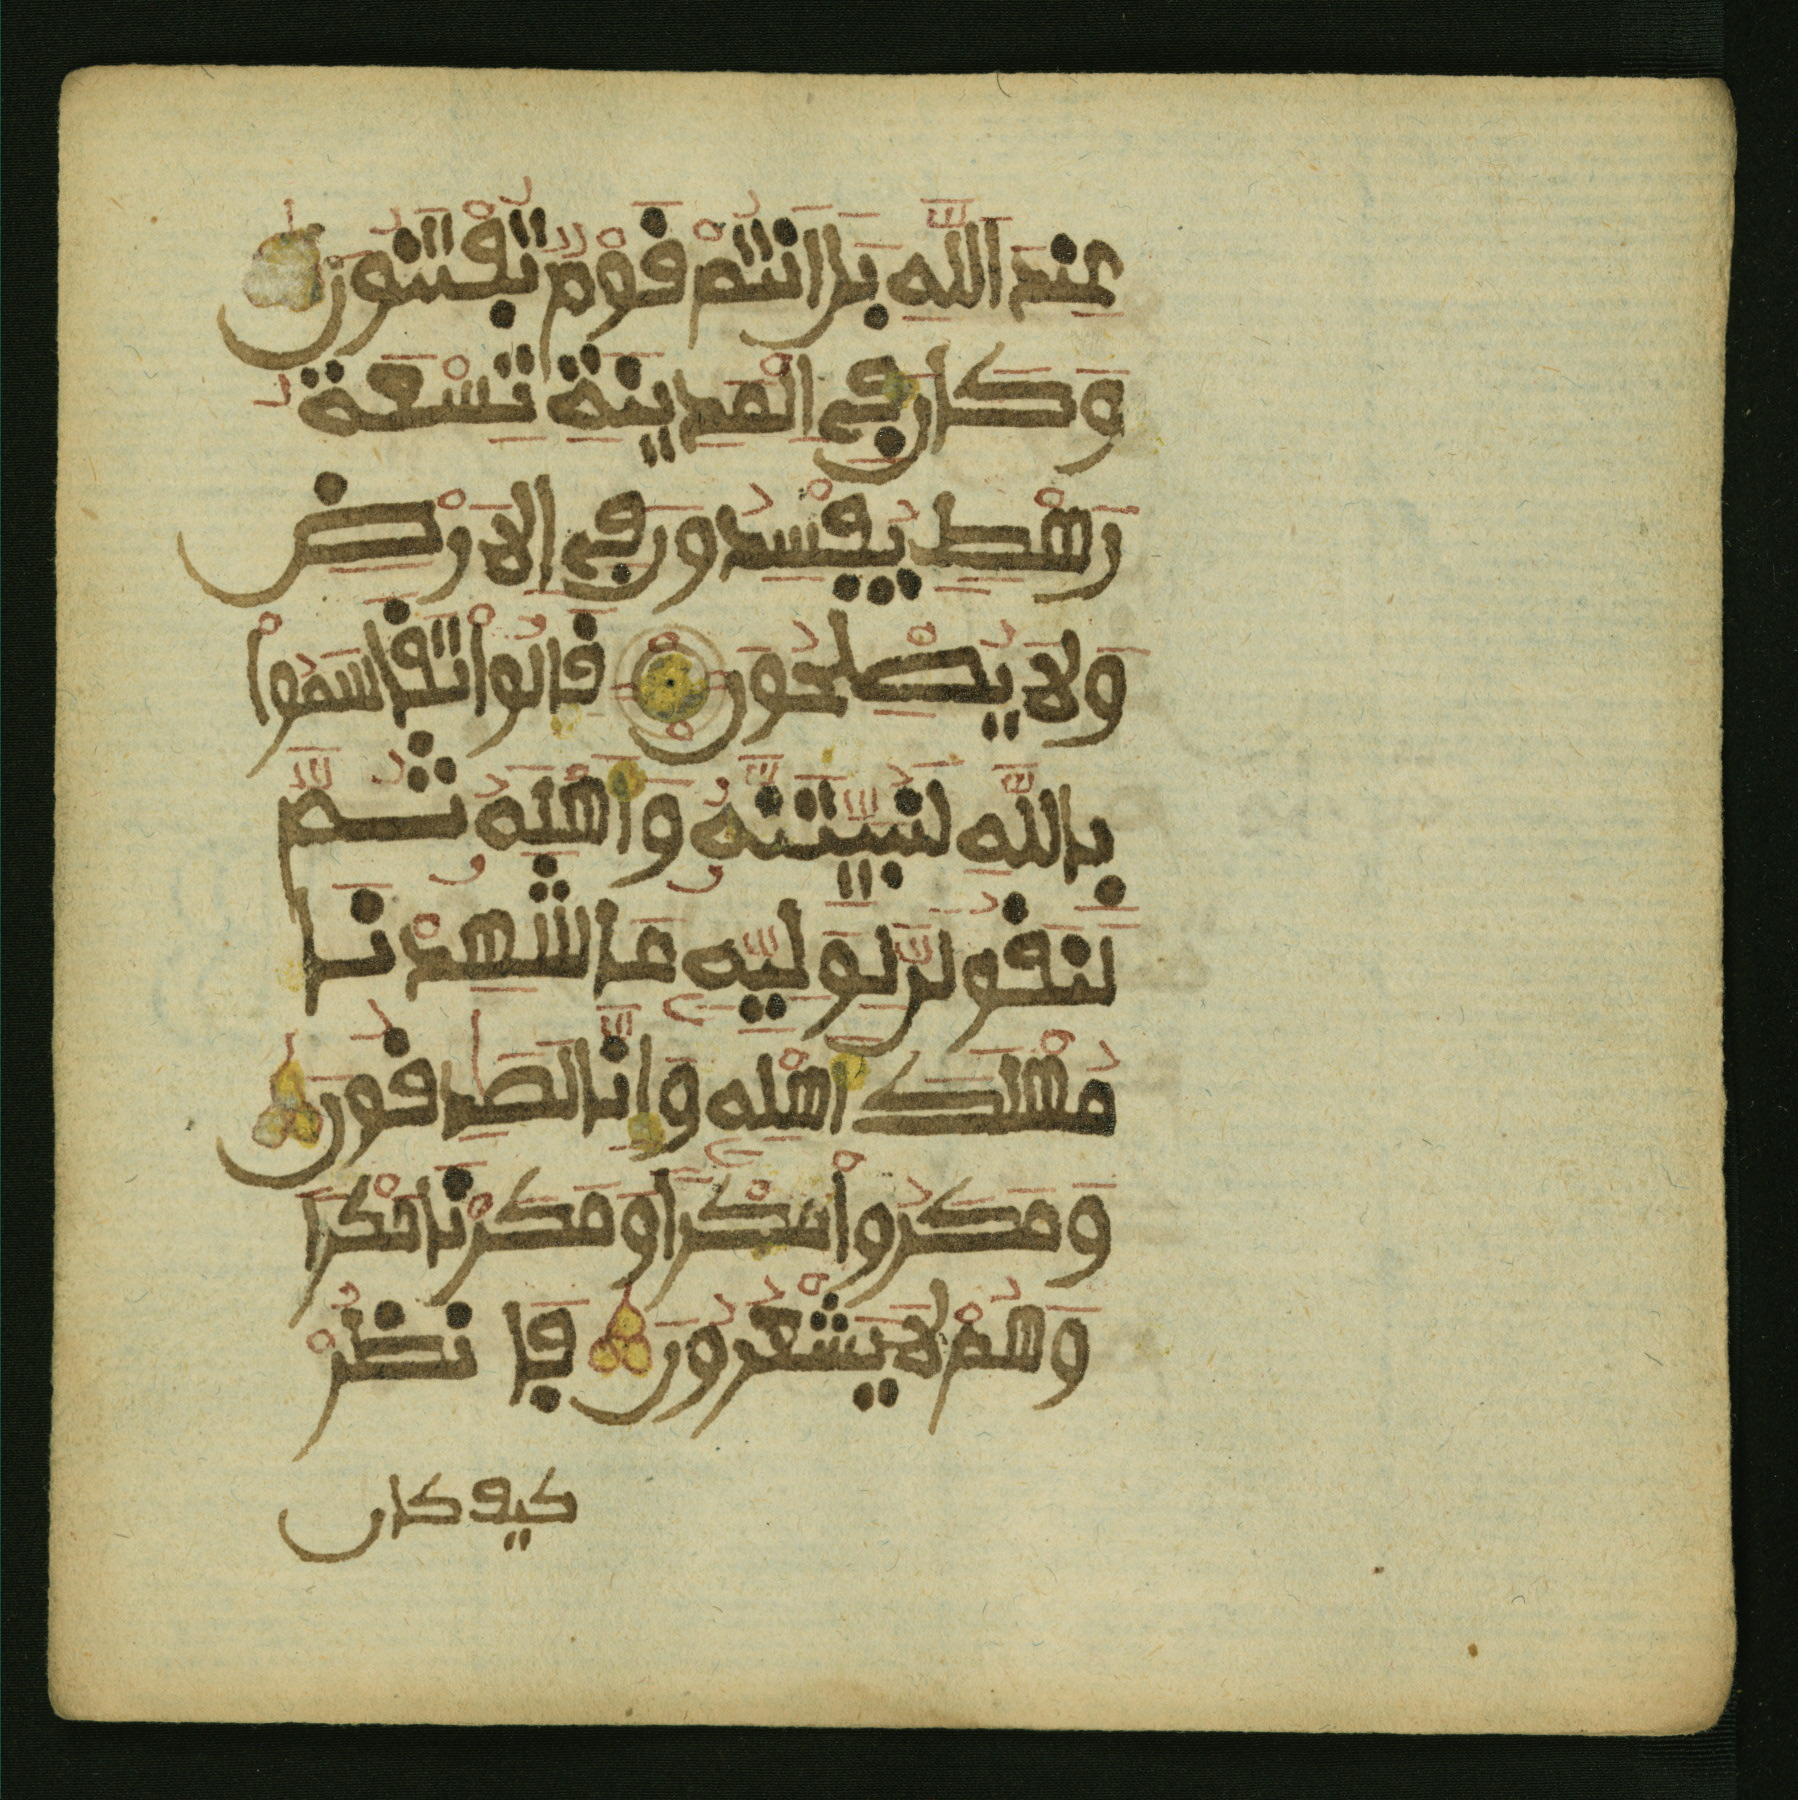 عِندَ اَللَّهِ بَلَ اَنتُمْ قَوْمٌ تُفْتَنُونَ
وَكَانَ فِي اِلْمَدِينَةِ تِسْعَةُ
رَهْطٍ يُفْسِدُونَ فِي اِلَارْضِ
وَلَا يُصْلِحُونَ قَالُواْ تَقَاسَمُواْ
بِاللَّهِ لَنُبَيِّتَنَّهُ وَأَهْلَهُ ثُمَّ
لَنَقُولَنَّ لِوَلِيِّهِ مَا شَهِدْنَا
مُهْلَكَ أَهْلِهِ وَإِنَّا لَصَدِقُونَ
وَمَكَرُواْ مَكْراً وَمَكَرْنَا مَكْراً
وَهُمْ لَا يَشْعُرُونَ فَانظُرْ
كيف كان